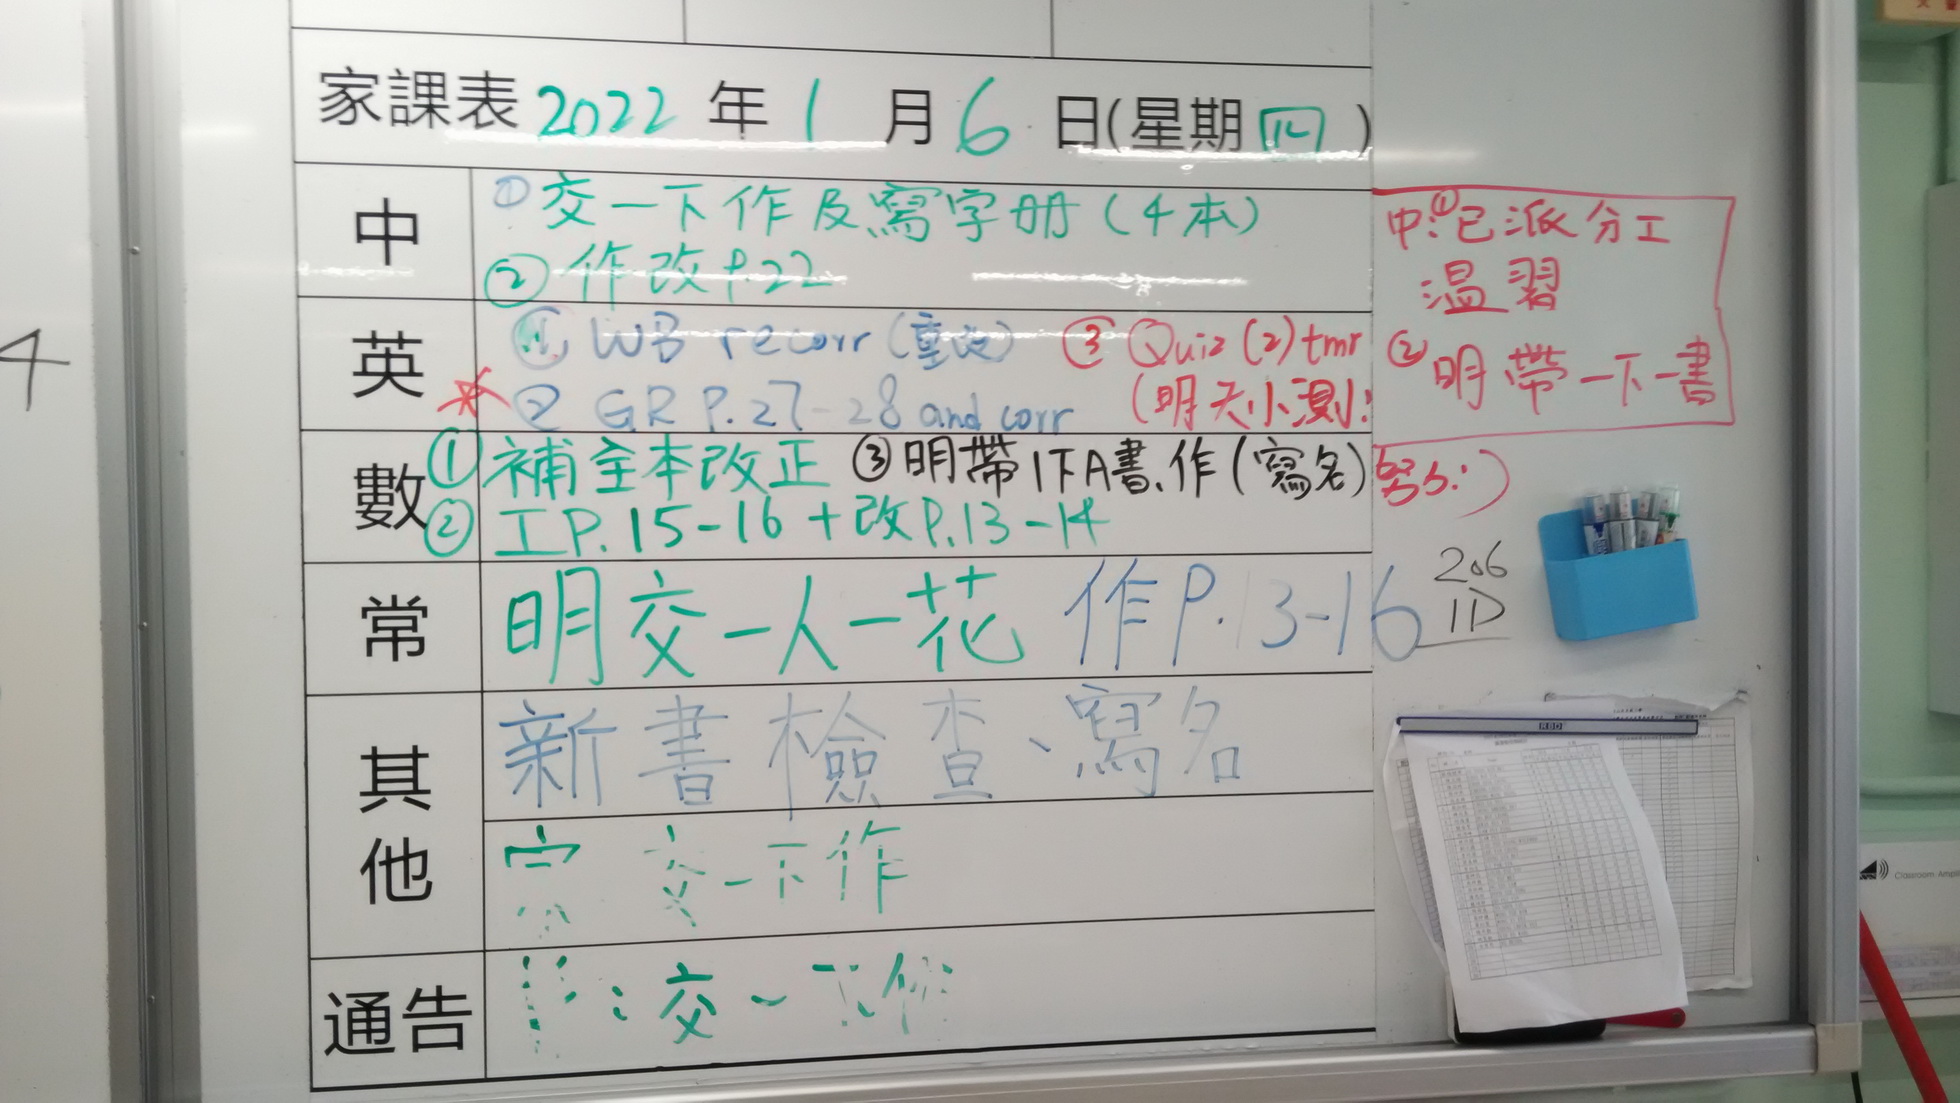 家課表 2022 年 1 月 6 日(星期四)
中
①交一下作及寫字册(4本)
②作改P.22
中:①已派分工
温習
②明帶一下書
英
① WB recorr (重改) ③ Quiz (2) tmr
② GR P.27-28 and corr (明天小測:
努力:)
數
①補全本改正 ③明帶1下A書、作(寫名)
②工P.15-16+改P.13-14
常
明交一人一花 作P.13-16
206
1D
其他
新書檢查、寫名
交一下作
通告
:交一下作
4
Classroom Ampl